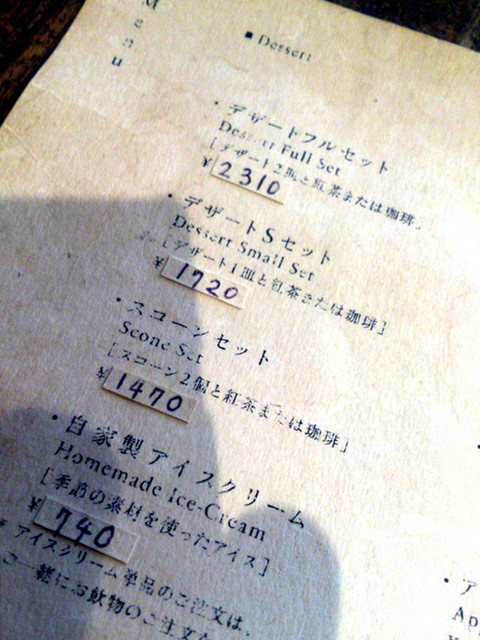 Menu
■ Dessert
・デザートフルセット
Dessert Full Set
[デザート2皿と紅茶または珈琲]
¥2310
・デザートSセット
Dessert Small Set
[デザート1皿と紅茶または珈琲]
¥1720
・スコーンセット
Scone Set
[スコーン2個と紅茶または珈琲]
¥1470
・自家製アイスクリーム
Homemade Ice-Cream
[季節の素材を使ったアイス]
¥740
* アイスクリーム単品のご注文は、
ご一緒にお飲物のご注文
・ア
Ap